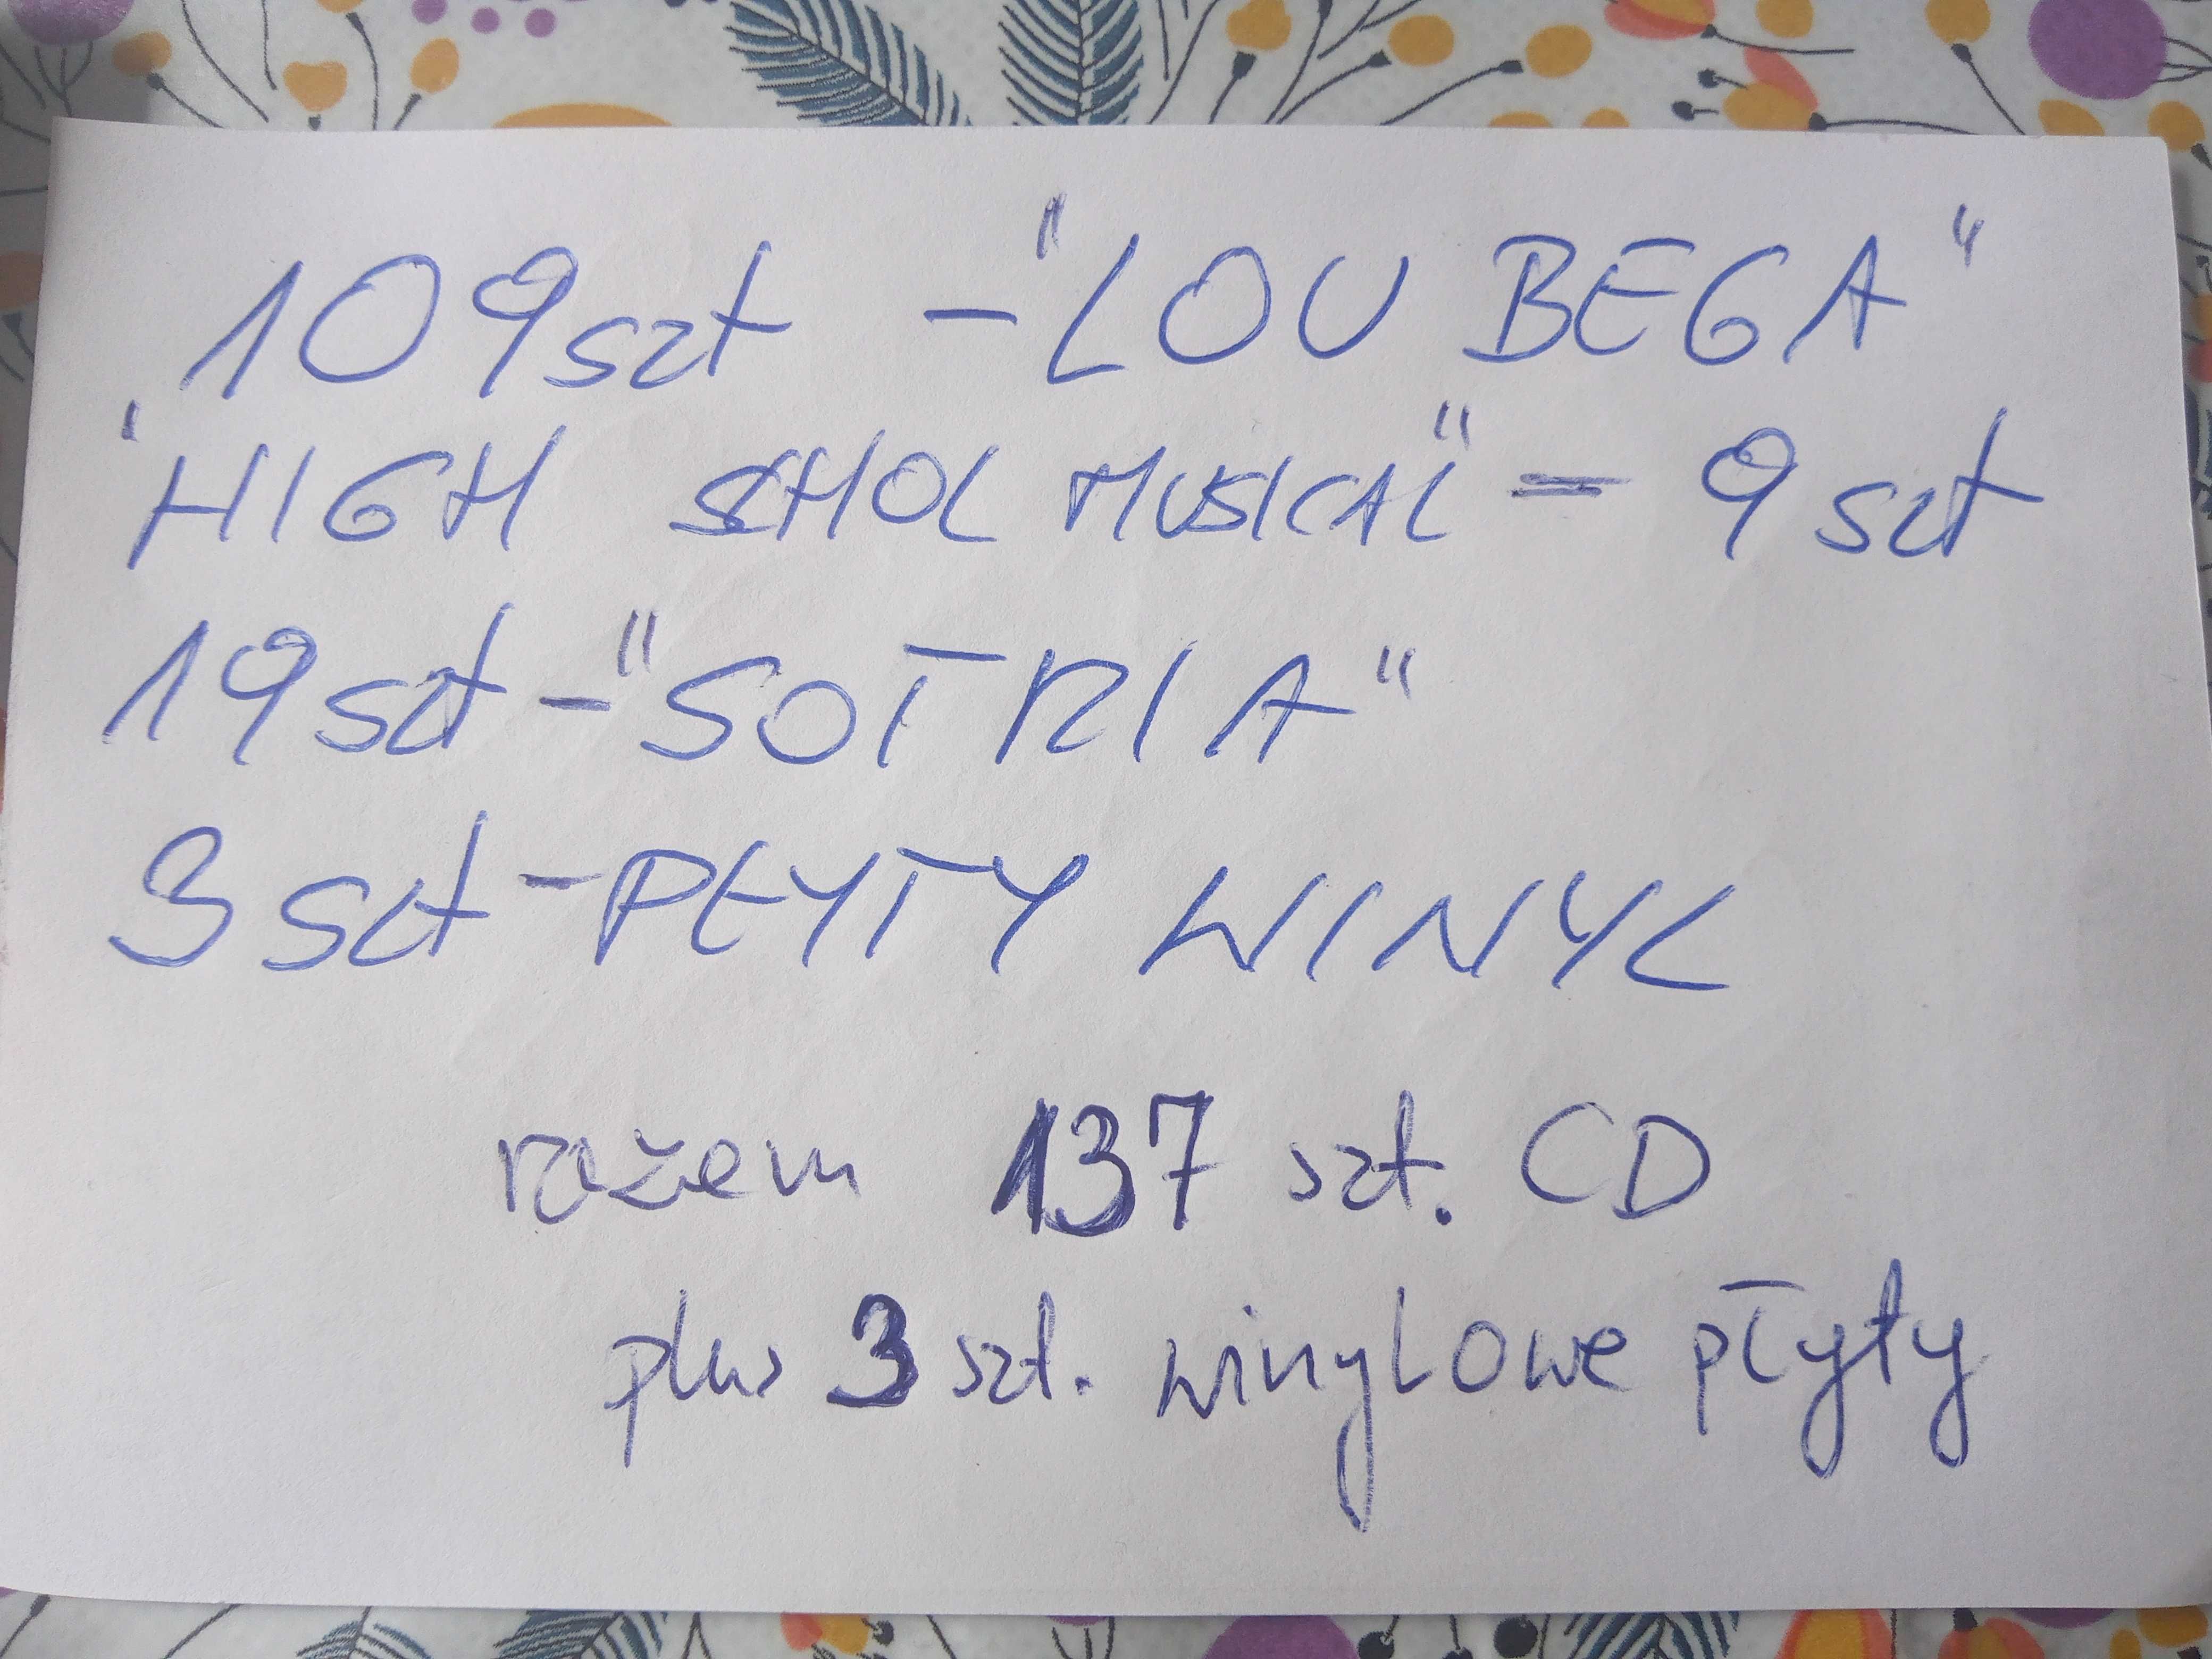 109szt - "LOU BEGA"
"HIGH SCHOL MUSICAL" - 9 szt
19szt - "SOTRIA"
3szt - PŁYTY WINYL
razem 137 szt. CD
plus 3 szt. winylowe płyty